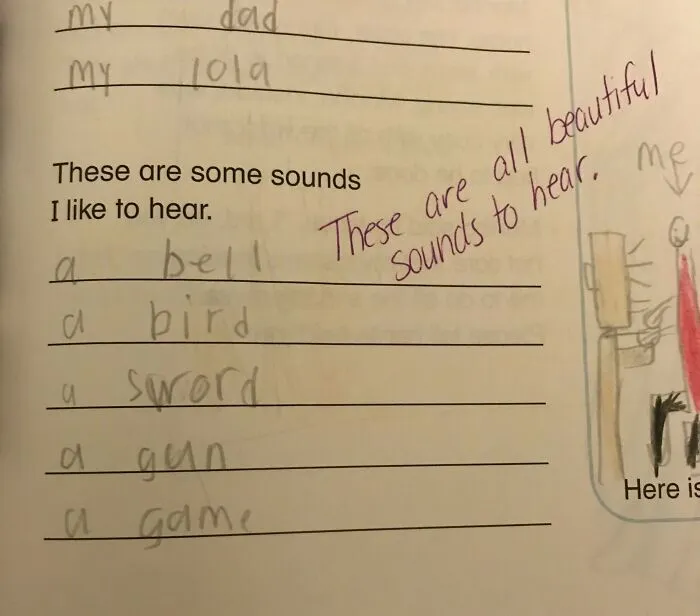 my dad
my lola
These are some sounds
I like to hear.
These are all beautiful
sounds to hear.
a bell
a bird
a sword
a gun
a game
me
Here is